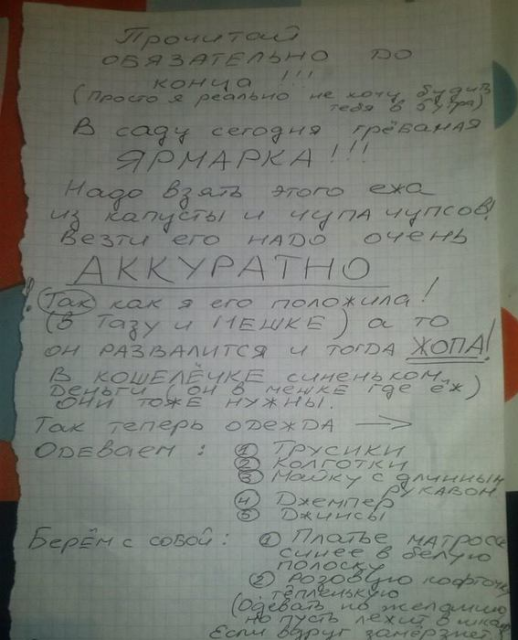 Прочитай
ОБЯЗАТЕЛЬНО ДО
КОНЦА !!!
(Просто я реально не хочу будить
тебя в 6 утра)
В саду сегодня грёбаная
ЯРМАРКА!!!
Надо взять этого ежа
из капусты и чупа чупсов!
Везти его НАДО очень
АККУРАТНО
! Так как я его положила!
(В Тазу и МЕШКЕ) а то
он РАЗВАЛИТСЯ и тогда ЖОПА!
В кошелёчке синеньком
деньги (он в мешке где ёж)
ОНИ ТОЖЕ НУЖНЫ.
Так теперь одежда →
Одеваем : ① Трусики
② Колготки
③ Майку с длинным
рукавом
④ Джемпер
⑤ Джинсы
Берём с собой : ① Платье матроса
синее в белую
полоску
② Розовую кофточку
тёпленькую
(Одевать по желанию
но пусть лежит в шкаф
Если вдруг замёрзнет